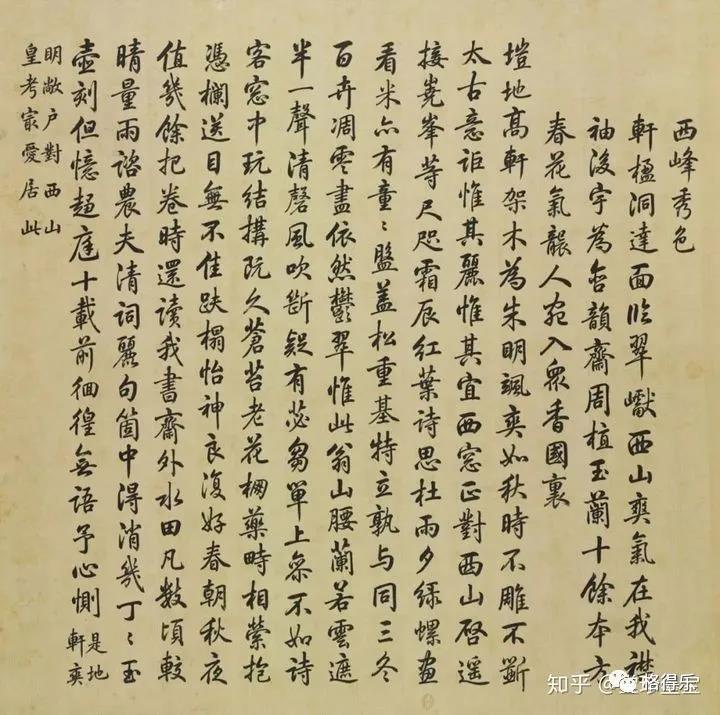 西峰秀色
軒楹洞達面臨翠巘西山爽氣在我襟
袖後宇為含韻齋周植玉蘭十餘本方
春花氣襲人宛入眾香國裏
塏地高軒架木為朱明颯爽如秋時不雕不斲
太古意詎惟其麗惟其宜西窓正對西山啓遥
接嶤峯等尺咫霜辰紅葉詩思杜雨夕綠螺畫
看米亦有童〻盤盖松重基特立孰与同三冬
百卉凋零盡依然鬱翠惟此翁山腰蘭若雲遮
半一聲清磬風吹斷疑有苾芻單上參不如詩
客窓中玩結搆既久蒼苔老花欄藥畤相縈抱
憑欄送目無不佳趺榻怡神良復好春朝秋夜
值幾餘把卷時還讀我書齋外水田凡數頃較
晴量雨諮農夫清詞麗句箇中得消幾丁〻玉
壺刻但憶趨庭十載前徊徨無語予心惻
是地
軒爽
明敞户對西山
皇考㝡愛居此
知乎
格得乐